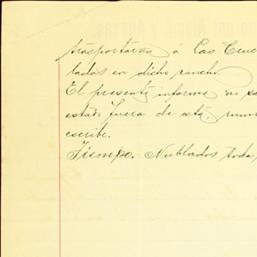 trasportarán á Las Cruc
tados en dicho rancho.
El presente informe no sa
estado fuera de esta,
escribe.
Tiempo. Nublados toda,